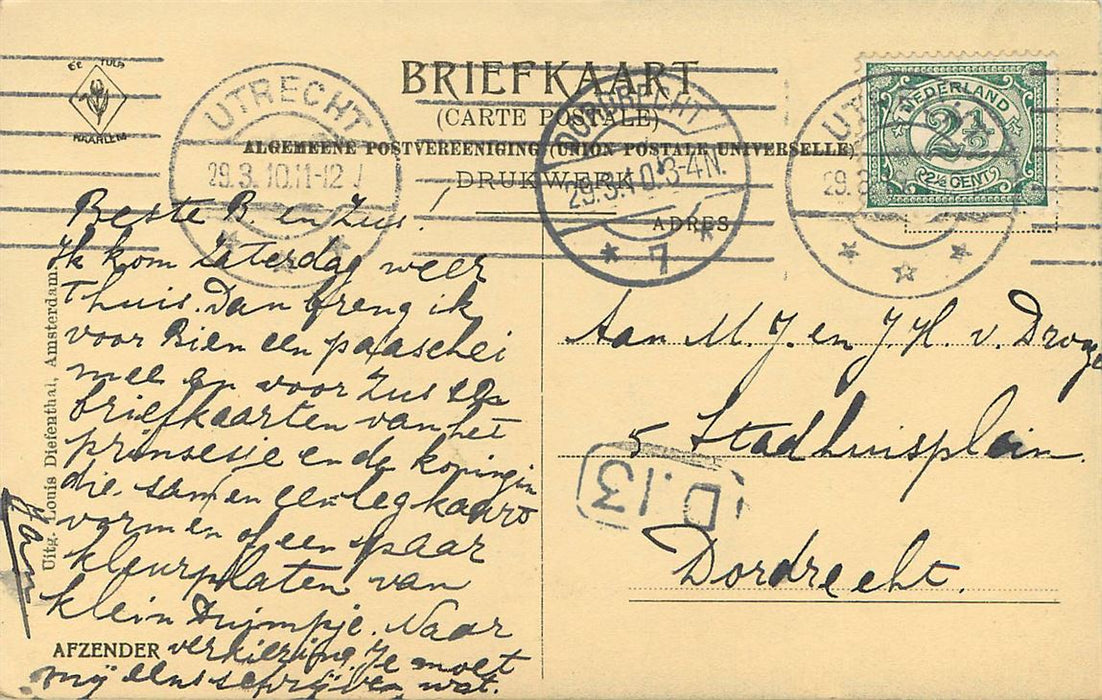 BRIEFKAART
(CARTE POSTALE)
ALGEMEENE POSTVEREENIGING (UNION POSTALE UNIVERSELLE)
DRUKWERK
ADRES
HAARLEM
UTRECHT
29.3.10.11-12
DORDRECHT
29.3.10.3-4N.
7
NEDERLAND
2½
2½ CENT
Beste B. en Zus!
Ik kom Zaterdag weer
thuis. Dan breng ik
voor Bien een paaschei
mee en voor Zus
briefkaarten van het
prinsesje en de koningin
die samen een legkaart
vormen of een paar
kleurplaten van
klein Duimpje. Naar
verkiezing. Je moet
mij eens schrijven wat.
Uitg. Louis Diefenthal, Amsterdam.
AFZENDER
Aan M. J. en J. H. v. Droge
5 Stadhuisplein.
Dordrecht.
D.13